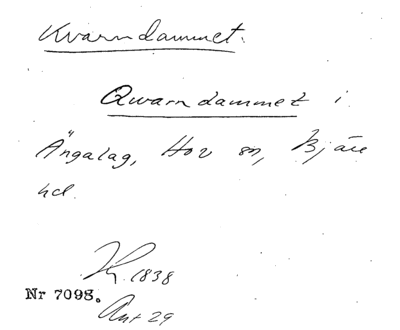 Kvarndammet.
Qwarndammet i
Ängalag, Hov sn, Bjäre
hd.
1838
Nr 7098.
Ant 29